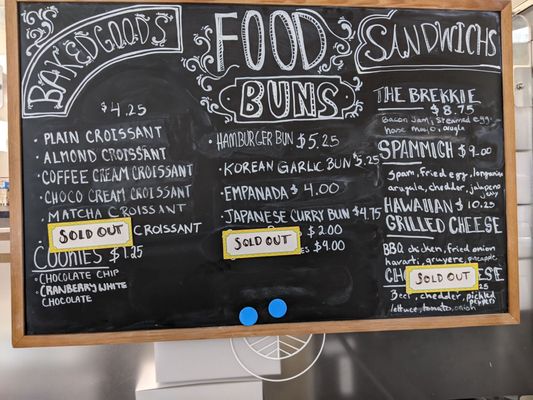 BAKED GOODS
$4.25
· PLAIN CROISSANT
· ALMOND CROISSANT
· COFFEE CREAM CROISSANT
· CHOCO CREAM CROISSANT
· MATCHA CROISSANT
SOLD OUT CROISSANT
COOKIES $1.25
· CHOCOLATE CHIP
· CRANBERRY WHITE
CHOCOLATE
FOOD
BUNS
· HAMBURGER BUN $5.25
· KOREAN GARLIC BUN $5.25
· EMPANADA $4.00
· JAPANESE CURRY BUN $4.75
SOLD OUT
$2.00
$9.00
SANDWICHS
THE BREKKIE
$8.75
Bacon Jam, Steamed egg,
SPAMMICH $9.00
Spam, fried egg, longanisa
arugula, cheddar, jalapeno
HAWAIIAN $10.25
GRILLED CHEESE
BBQ chicken, fried onion
havarti, gruyere, pineapple
SOLD OUT
Beef, cheddar, pickled
peppers
lettuce, tomato, onion